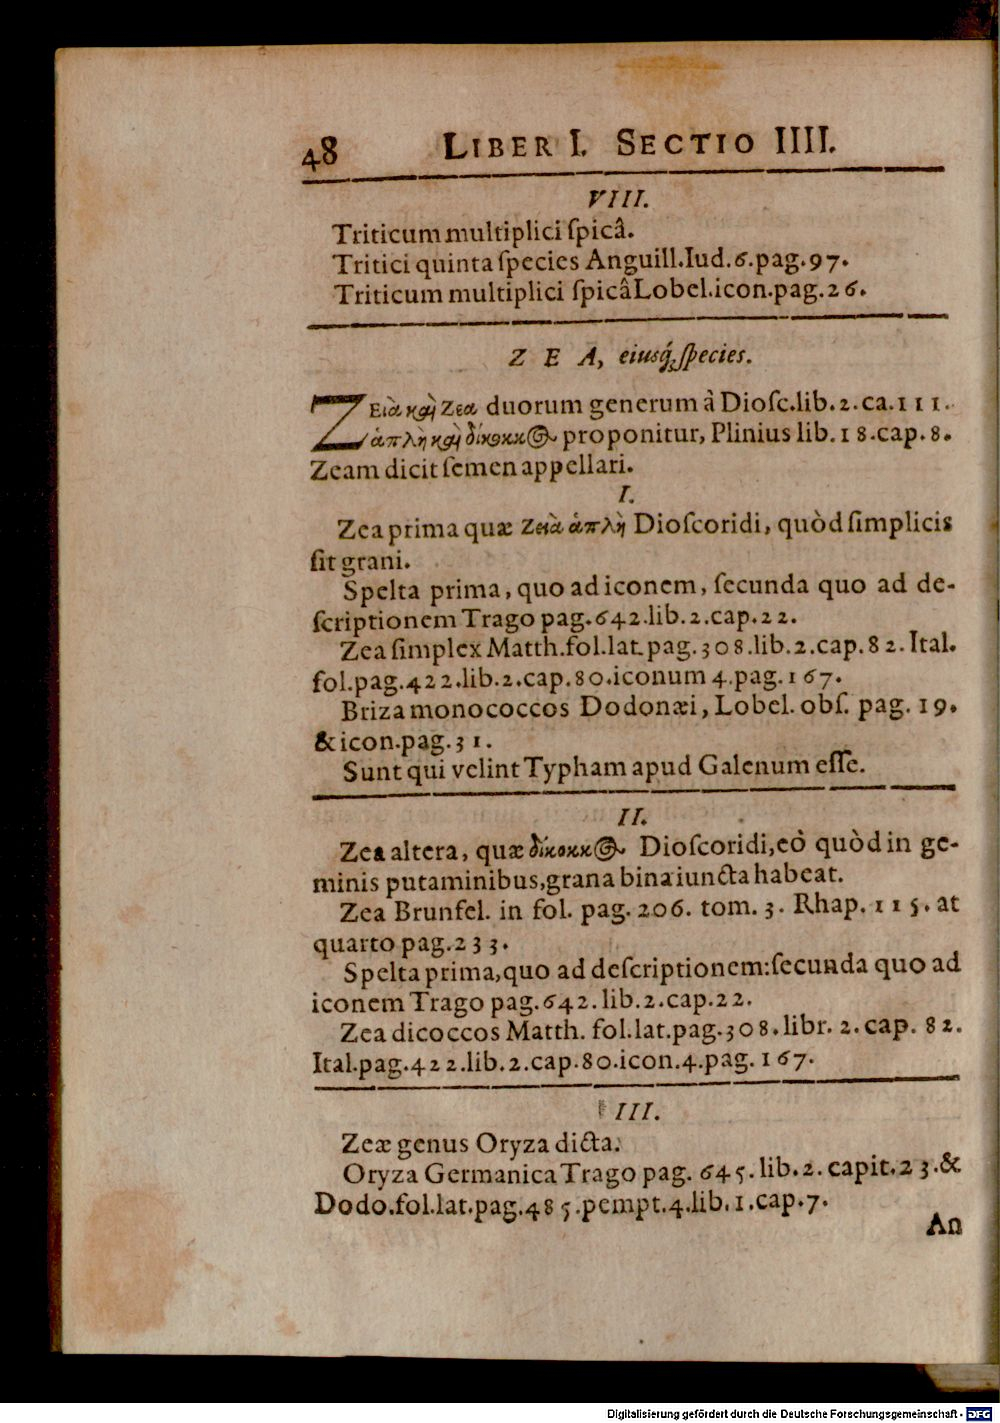 48 LIBER I. SECTIO IIII.
VIII.
Triticum multiplici ſpicâ.
Tritici quinta ſpecies Anguill. Iud. 6. pag. 97.
Triticum multiplici ſpicâ Lobel. icon. pag. 26.
Z E A, eiusq́; ſpecies.
ΖΕιὰ καὶ Ζεα duorum generum à Dioſc. lib. 2. ca. 111.
ἁπλὴ καὶ δίκοκκος proponitur, Plinius lib. 18. cap. 8.
Zeam dicit ſemen appellari.
I.
Zea prima quæ Ζειὰ ἁπλὴ Dioſcoridi, quòd ſimplicis
ſit grani.
Spelta prima, quo ad iconem, ſecunda quo ad de-
ſcriptionem Trago pag. 642. lib. 2. cap. 22.
Zea ſimplex Matth. fol. lat. pag. 308. lib. 2. cap. 82. Ital.
fol. pag. 422. lib. 2. cap. 80. iconum 4. pag. 167.
Briza monococcos Dodonæi, Lobel. obſ. pag. 19.
& icon. pag. 31.
Sunt qui velint Typham apud Galenum eſſe.
II.
Zea altera, quæ δίκοκκος Dioſcoridi, eò quòd in ge-
minis putaminibus, grana bina iuncta habeat.
Zea Brunfel. in fol. pag. 206. tom. 3. Rhap. 115. at
quarto pag. 233.
Spelta prima, quo ad deſcriptionem: ſecunda quo ad
iconem Trago pag. 642. lib. 2. cap. 22.
Zea dicoccos Matth. fol. lat. pag. 308. libr. 2. cap. 82.
Ital. pag. 422. lib. 2. cap. 80. icon. 4. pag. 167.
III.
Zeæ genus Oryza dicta.
Oryza Germanica Trago pag. 645. lib. 2. capit. 23. &
Dodo. fol. lat. pag. 485. pempt. 4. lib. 1. cap. 7.
An
Digitalisierung gefördert durch die Deutsche Forschungsgemeinschaft - DFG